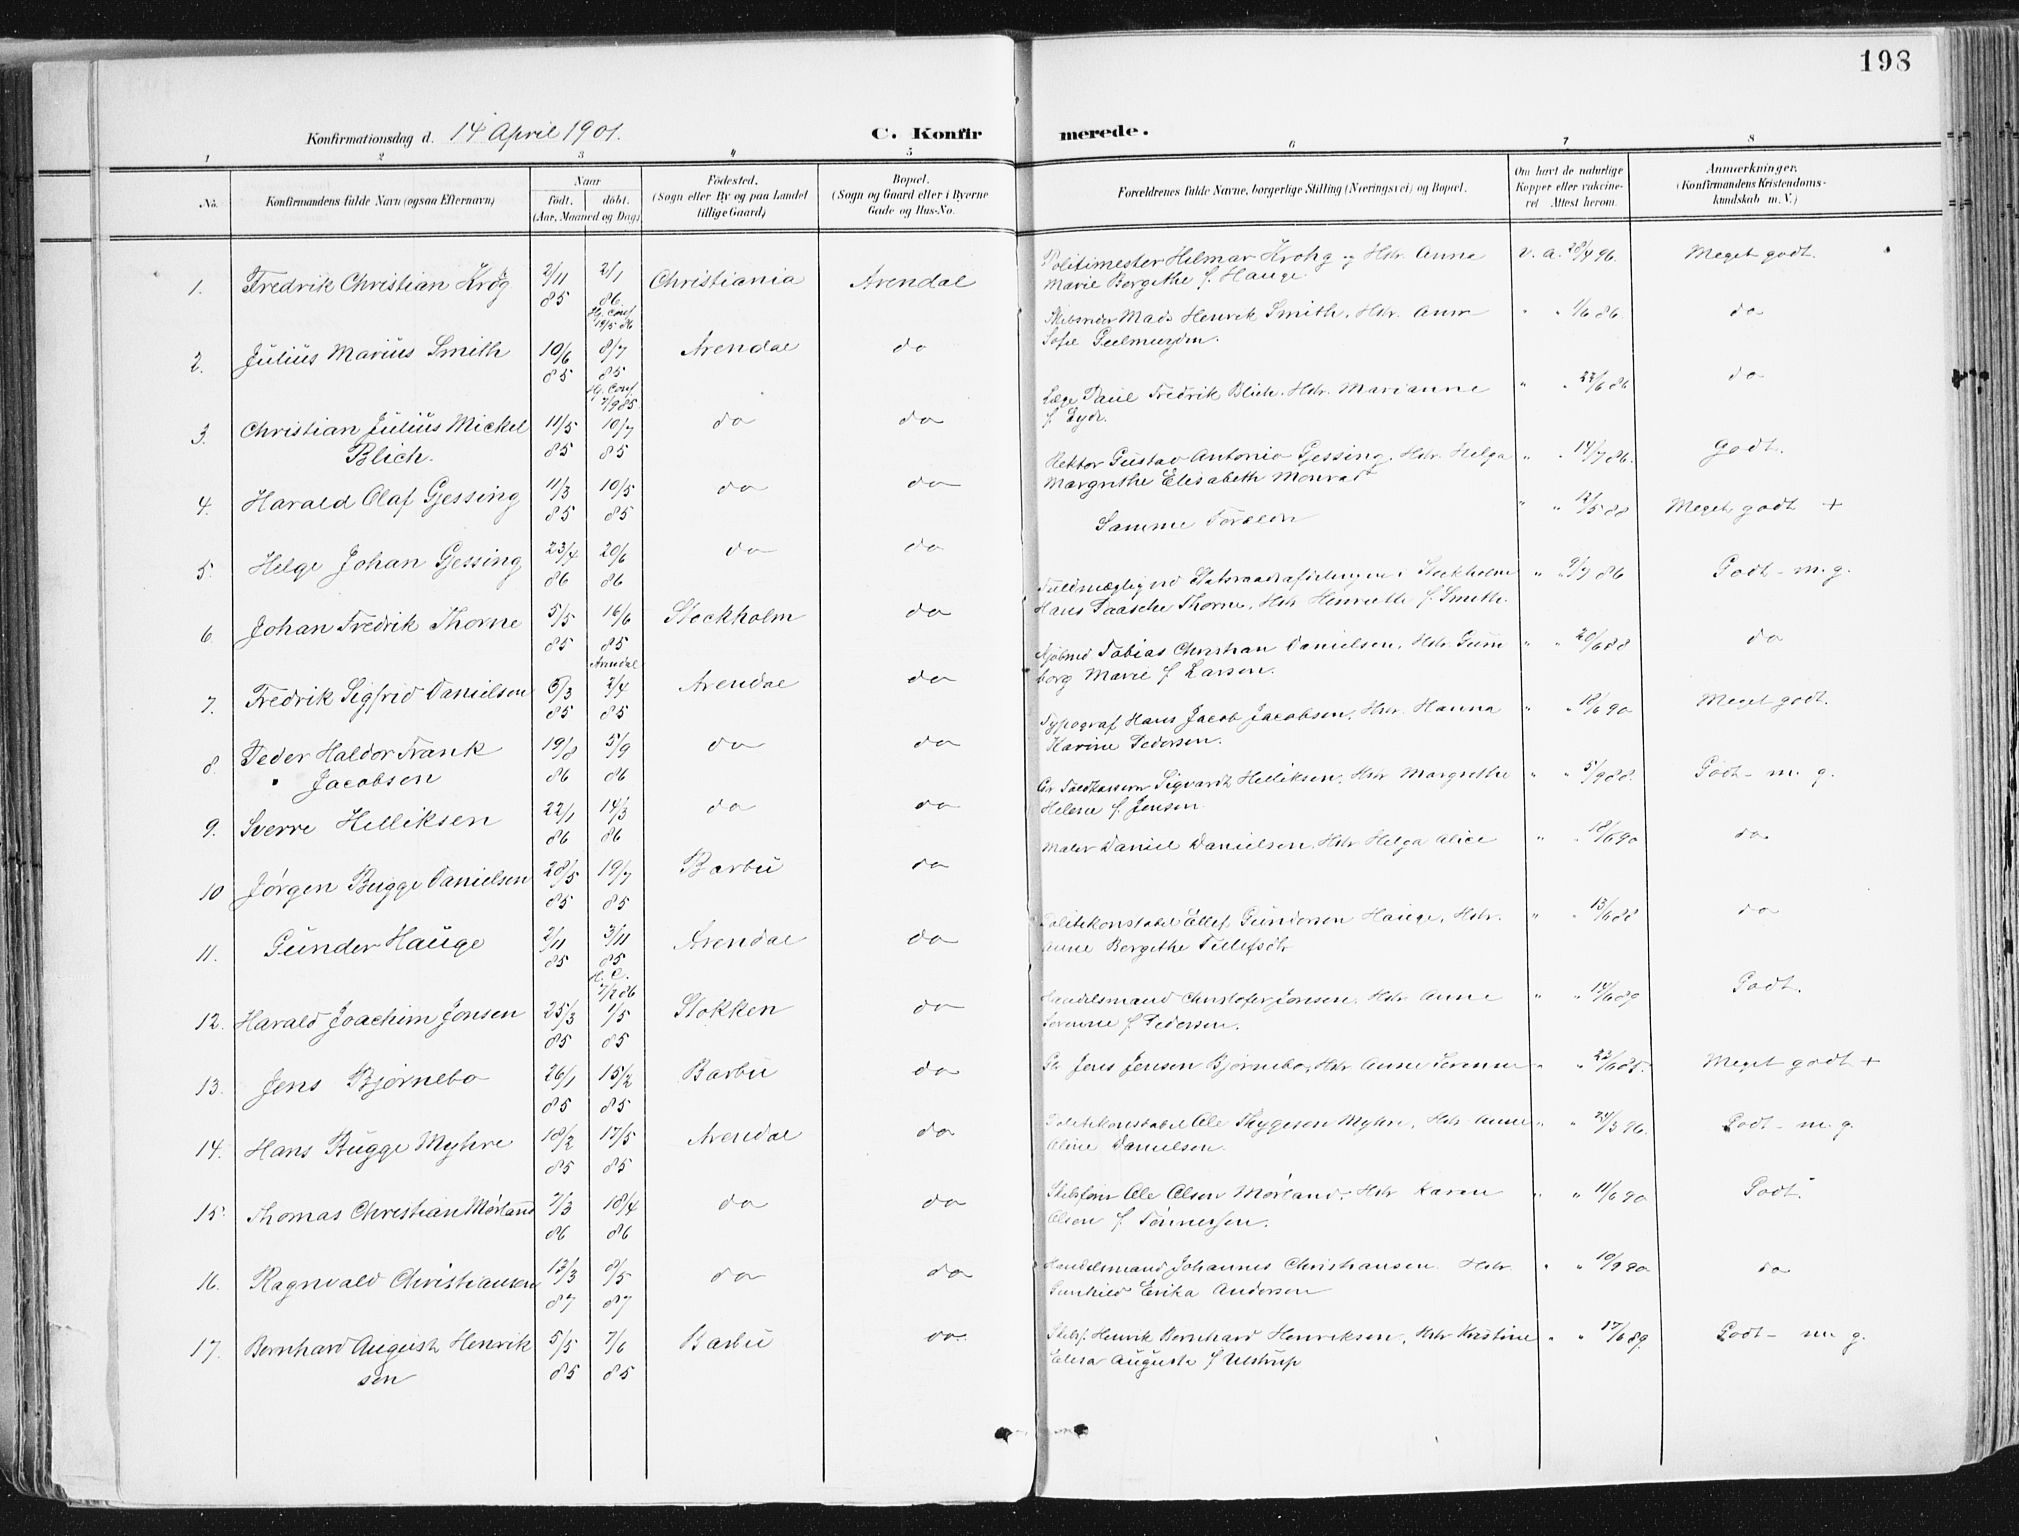 198
Konfirmationsdag d. 14 April 1901.
C. Konfirmerede.
1 2 3 4 5 6 7 8
No.
Konfirmandens fulde Navn (ogsaa Efternavn)
Naar
født. døbt.
(Aar, Maaned og Dag)
Fødested.
(Sogn eller By og paa Landet
tillige Gaard)
Bopæl.
(Sogn og Gaard eller i Byerne
Gade og Hus-No.
Forældrenes fulde Navne, borgerlige Stilling (Næringsvei) og Bopæl.
Om havt de naturlige
Kopper eller vakcine-
ret Attest herom.
Anmerkninger.
(Konfirmandens Kristendoms-
kundskab m. V.)
1. Fredrik Christian Krog 2/11 85 2/1 86 Christiania Arendal Politimester Hilmar Krohg og Hstr. Anna v. a. 28/4 96. Meget godt.
Hj. conf 19/5 86
Marie Borgithe f. Hauge
2. Julius Marius Smith 10/6 85 8/7 85 Arendal do Mads Henrik Smith. Hstr. Anna " " 1/6 86. do
Hj. conf 7/9 85
Sofie
3. Christian Julius Mickel 11/5 85 10/7 85 do do Læge Paul Fredrik Blich. Hstr. Marianne " " 27/6 86 do
Blich.
f. Eyde.
4. Harald Olaf Gjessing 11/3 85 10/5 85 do do Rektor Gustav Antonio Gjessing. Hstr. Helga " " 14/7 86. Godt.
Margrethe Elisabeth Monrad
5. Helge Johan Gjessing 23/4 86 20/6 86 do do Samme Foræld " " 12/5 88 Meget godt +
6. Johan Fredrik Thorne 5/5 85 16/6 85 Stockholm do Fuldmægtig ved Statsraadsafdelingen i Stockholm " " 9/7 86 Godt - m. g.
Arendal
Hans Paasche Thorne, Hstr Henriette f. Smith.
7. Fredrik Sigfrid Danielsen 6/3 85 2/4 85 Arendal do Tobias Christian Danielsen, Hstr. Gun " " 20/6 88 do
borg Marie f. Larsen.
8. Peder Haldor Frank 19/8 86 5/9 86 do do Typograf Hans Jacob Jacobsen, Hstr. Hanna " " 18/6 90 Meget godt.
Jacobsen
Karine Pedersen.
9. Sverre Helliksen 22/1 86 14/3 86 do do Sigvardt Helliksen, Hstr Margrethe " " 5/9 88. Godt - m. g.
Helene f. Jensen
10 Jørgen Bugge Danielsen 28/5 85 19/7 85 Barbu do Maler Daniel Danielsen. Hstr Helga Alice " " 18/6 90 do
11. Gunder Hauge 2/11 85 3/11 85 Arendal do Politikonstabel Ellef Gundersen Hauge, Hstr. " " 13/6 88 do
H. C. 7/2 86
Anne Borgithe Tellefsdtr
12. Harald Joachim Jonsen 25/3 85 1/5 85 Stokken do Handelsmand Christofer Jonsen. Hstr Anne " " 14/6 89 Godt.
Serenne f. Pedersen.
13. Jens Bjørnebo 26/1 85 15/2 85 Barbu do Jens Jensen Bjørnebo, Hstr Anne Serenne " " 22/6 85. Meget godt +
14. Hans Bugge Myhre 18/2 85 17/5 85 Arendal do Politikonstabel Ole Thygesen Myhre, Hstr Anne " " 24/3 96. Godt - m. g.
Oline Danielsen.
15. Thomas Christian Mørland 7/3 86 18/4 86 do do Skibsfører Ole Olsen Mørland, Hstr Karen " " 11/6 90 Godt.
Olson f. Tønnessen.
16. Ragnvald Christiansen 13/3 87 8/5 87 do do Handelsmand Johannes Christiansen. Hstr " " 10/9 90 do
Gunhild Erika Andersen
17. Bernhard August Henrik 5/5 85 7/6 85 Barbu do Skibsf. Henrik Bernhard Henriksen, Hstr Kristine " " 17/6 89. Godt - m. g.
sen
Elisa Augusta f. Ulstrup